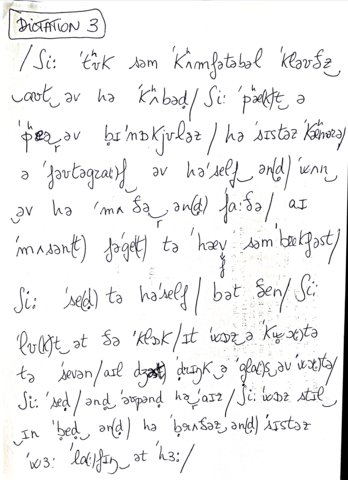 DICTATION 3
/ʃi: 'tʰʊk səm 'kʰʌmfətəbəl 'kləʊðz
aʊt əv hə 'kʰʌbəd/ ʃi: 'pʰæ(k)t ə
'pʰeər əv bɪ'nɒkjʊləz / hə 'sɪstəz 'kʰæmərə/
ə 'fəʊtəgrɑ:f əv hə'self ən(d)/ wʌn
əv hə 'mʌðər ən(d) fɑ:ðə/ aɪ
'mʌsən(t) fə'ge(t) tə 'hæv səm 'brekfəst/
ʃi: 'se(d) tə hə'self/ bət ðen/ ʃi:
'lʊ(k)t ət ðə 'klɒk/ɪt wɒz ə 'kwɔ:tə
tə 'sevən/aɪl dʒəst drɪŋk ə 'glɑ:s əv 'wɔ:tə/
ʃi: 'sed/ənd 'əʊpənd hər 'aɪz/ ʃi: 'wɒz stɪl
ɪn 'bed ən(d) hə brʌðəz ən(d) 'sɪstəz
wɜ: 'lɑ:fɪŋ ət 'hɜ:/